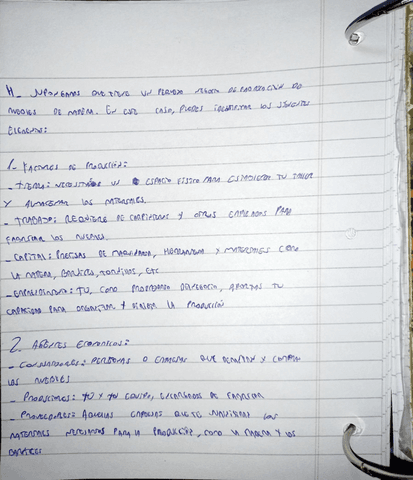 4_ SUPONGAMOS QUE TIENE UN PEQUEÑO NEGOCIO DE PRODUCCION DE
MUEBLES DE MADERA. EN ESTE CASO, PUEDES IDENTIFICAR LOS SIGUIENTES
ELEMENTOS:
1- FACTORES DE PRODUCCIÓN:
- TIERRA: NECESITARÍAS UN ESPACIO FISICO PARA ESTABLECER TU TALLER
Y ALMACENAR LOS MATERIALES.
- TRABAJO: REQUIERE DE CARPINTEROS Y OTROS EMPLEADOS PARA
FABRICAR LOS MUEBLES.
- CAPITAL: PRECISAS DE MAQUINARIA, HERRAMIENTAS Y MATERIALES COMO
LA MADERA, BARNICES, TORNILLOS, ETC
- EMPRENDIMIENTO: TÚ, COMO PROPIETARIO DEL NEGOCIO, APORTAS TU
CAPACIDAD PARA ORGANIZAR Y DIRIGIR LA PRODUCCIÓN
2. AGENTES ECONOMICOS:
- CONSUMIDORES: PERSONAS O EMPRESAS QUE DEMANDAN Y COMPRAN
LOS MUEBLES
- PRODUCTORES: TÚ Y TU EQUIPO, ENCARGADOS DE FABRICAR
- PROVEEDORES: AQUELLAS EMPRESAS QUE TE LOS
MATERIALES NECESARIOS PARA LA PRODUCCIÓN, COMO LA MADERA Y LOS
BARNICES